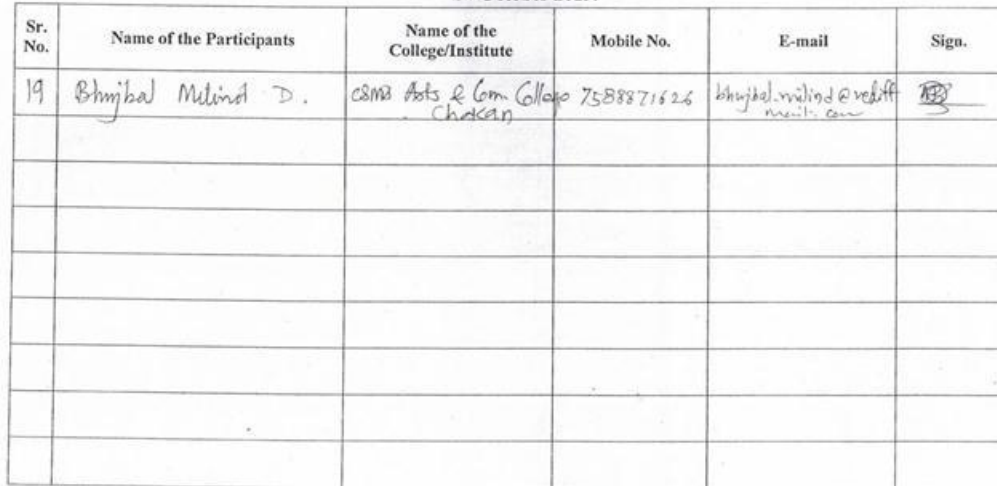 Sr. No.
Name of the Participants
Name of the College/Institute
Mobile No.
E-mail
Sign.
19
Bhujbal Milind D.
CSMB Arts & Com. College
Chakan
7588871626
bhujbal.milind@rediff
mail.com